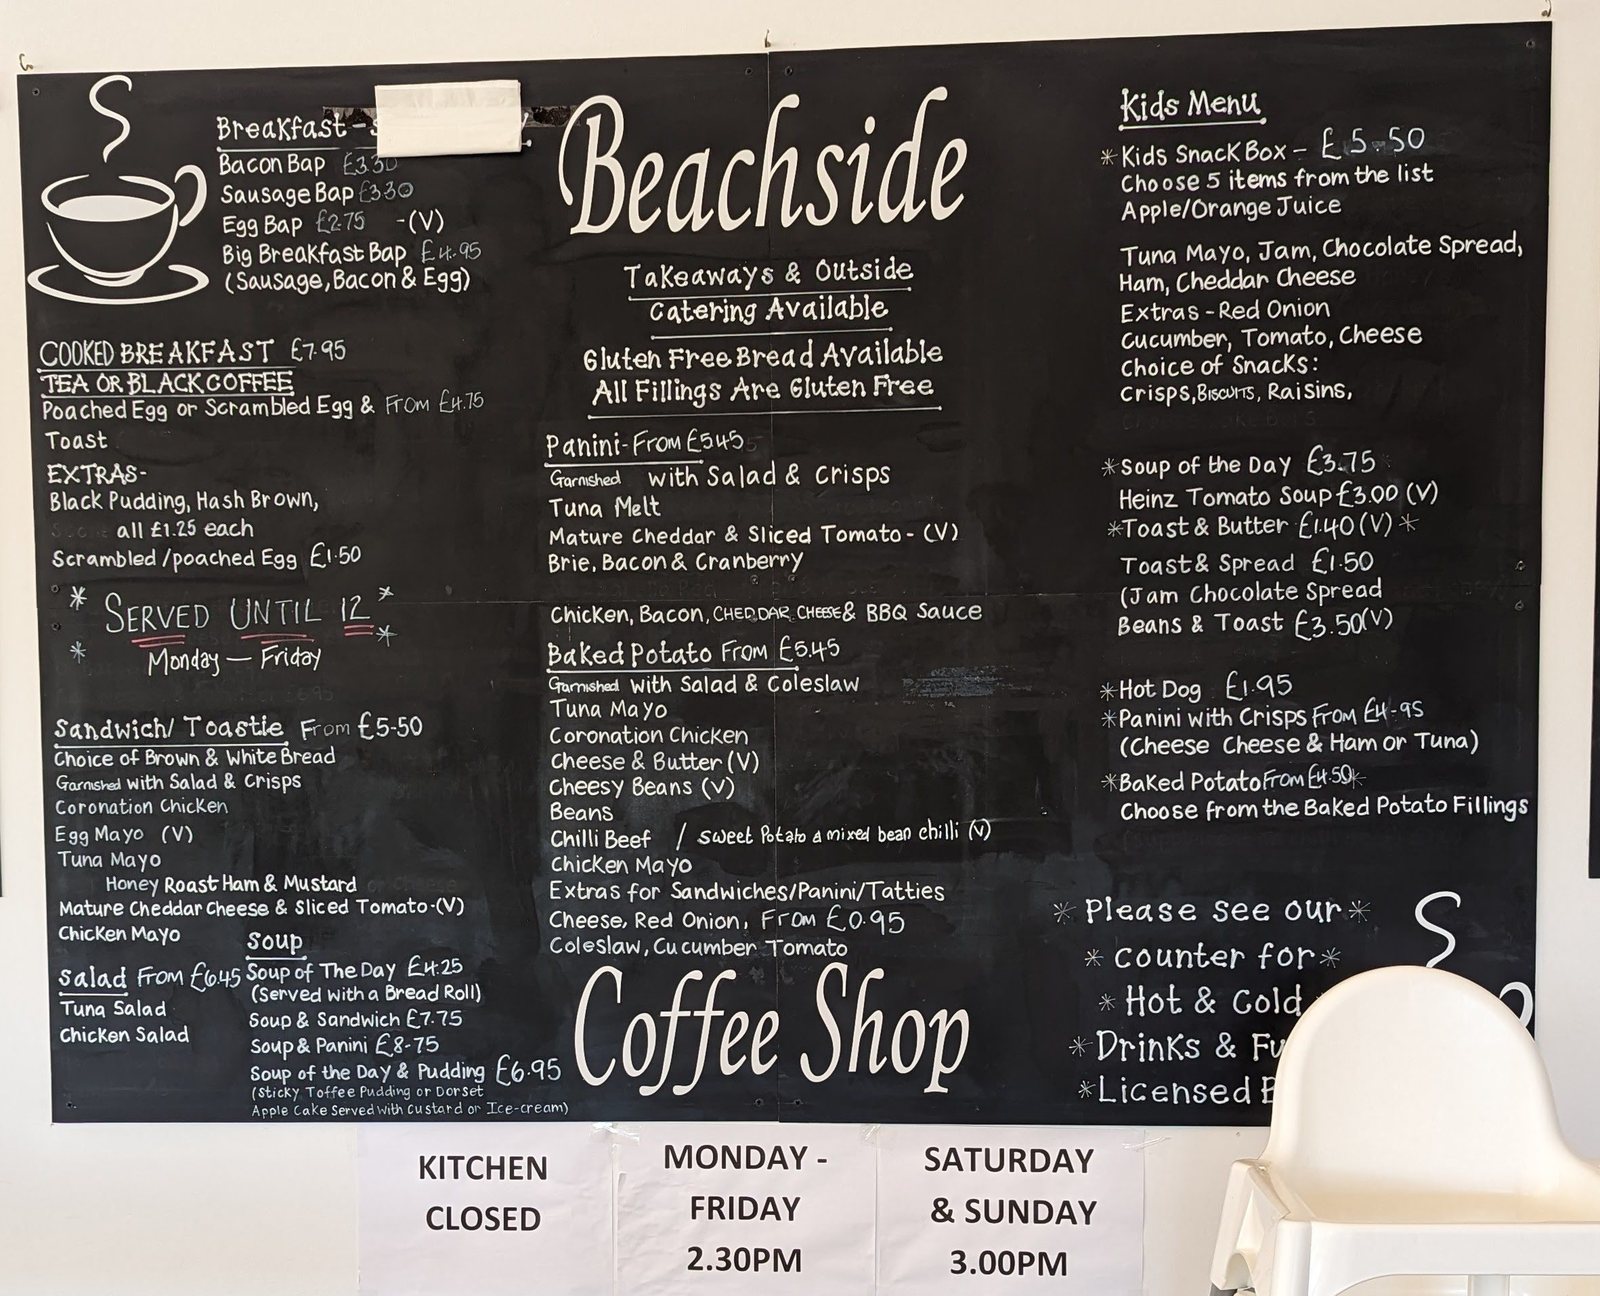 Breakfast -
Bacon Bap £3.30
Sausage Bap £3.30
Egg Bap £2.75 -(V)
Big Breakfast Bap £4.95
(Sausage, Bacon & Egg)
COOKED BREAKFAST £7.95
TEA OR BLACK COFFEE
Poached Egg or Scrambled Egg & From £4.75
Toast
EXTRAS-
Black Pudding, Hash Brown,
all £1.25 each
Scrambled/poached Egg £1.50
* SERVED UNTIL 12 *
* Monday — Friday *
Sandwich/ Toastie From £5-50
Choice of Brown & White Bread
Garnished with Salad & Crisps
Coronation Chicken
Egg Mayo (V)
Tuna Mayo
Honey Roast Ham & Mustard
Mature Cheddar Cheese & Sliced Tomato-(V)
Chicken Mayo
Salad From £6.45
Tuna Salad
Chicken Salad
Soup
Soup of The Day £4.25
(Served with a Bread Roll)
Soup & Sandwich £7.75
Soup & Panini £8-75
Soup of the Day & Pudding £6.95
(Sticky Toffee Pudding or Dorset
Apple Cake Served with custard or Ice-cream)
Beachside
Takeaways & Outside
Catering Available
Gluten Free Bread Available
All Fillings Are Gluten Free
Panini-From £5.45
Garnished with Salad & Crisps
Tuna Melt
Mature Cheddar & Sliced Tomato- (V)
Brie, Bacon & Cranberry
Chicken, Bacon, CHEDDAR CHEESE & BBQ Sauce
Baked Potato From £5.45
Garnished with Salad & Coleslaw
Tuna Mayo
Coronation Chicken
Cheese & Butter (V)
Cheesy Beans (V)
Beans
Chilli Beef / Sweet Potato & mixed bean chilli (V)
Chicken Mayo
Extras for Sandwiches/Panini/Tatties
Cheese, Red Onion, From £0.95
Coleslaw, Cucumber Tomato
Coffee Shop
Kids Menu
*Kids Snack Box - £5.50
Choose 5 items from the list
Apple/Orange Juice
Tuna Mayo, Jam, Chocolate Spread,
Ham, Cheddar Cheese
Extras - Red Onion
Cucumber, Tomato, Cheese
Choice of Snacks:
Crisps, BISCUITS, Raisins,
*Soup of the Day £3.75
Heinz Tomato Soup £3.00 (V)
*Toast & Butter £1.40 (V) *
Toast & Spread £1.50
(Jam Chocolate Spread
Beans & Toast £3.50(V)
*Hot Dog £1.95
*Panini with Crisps From £4-95
(Cheese Cheese & Ham or Tuna)
*Baked Potato From £4.50*
Choose from the Baked Potato Fillings
* Please see our *
* counter for *
* Hot & Cold
* Drinks &
* Licensed
KITCHEN
CLOSED
MONDAY -
FRIDAY
2.30PM
SATURDAY
& SUNDAY
3.00PM